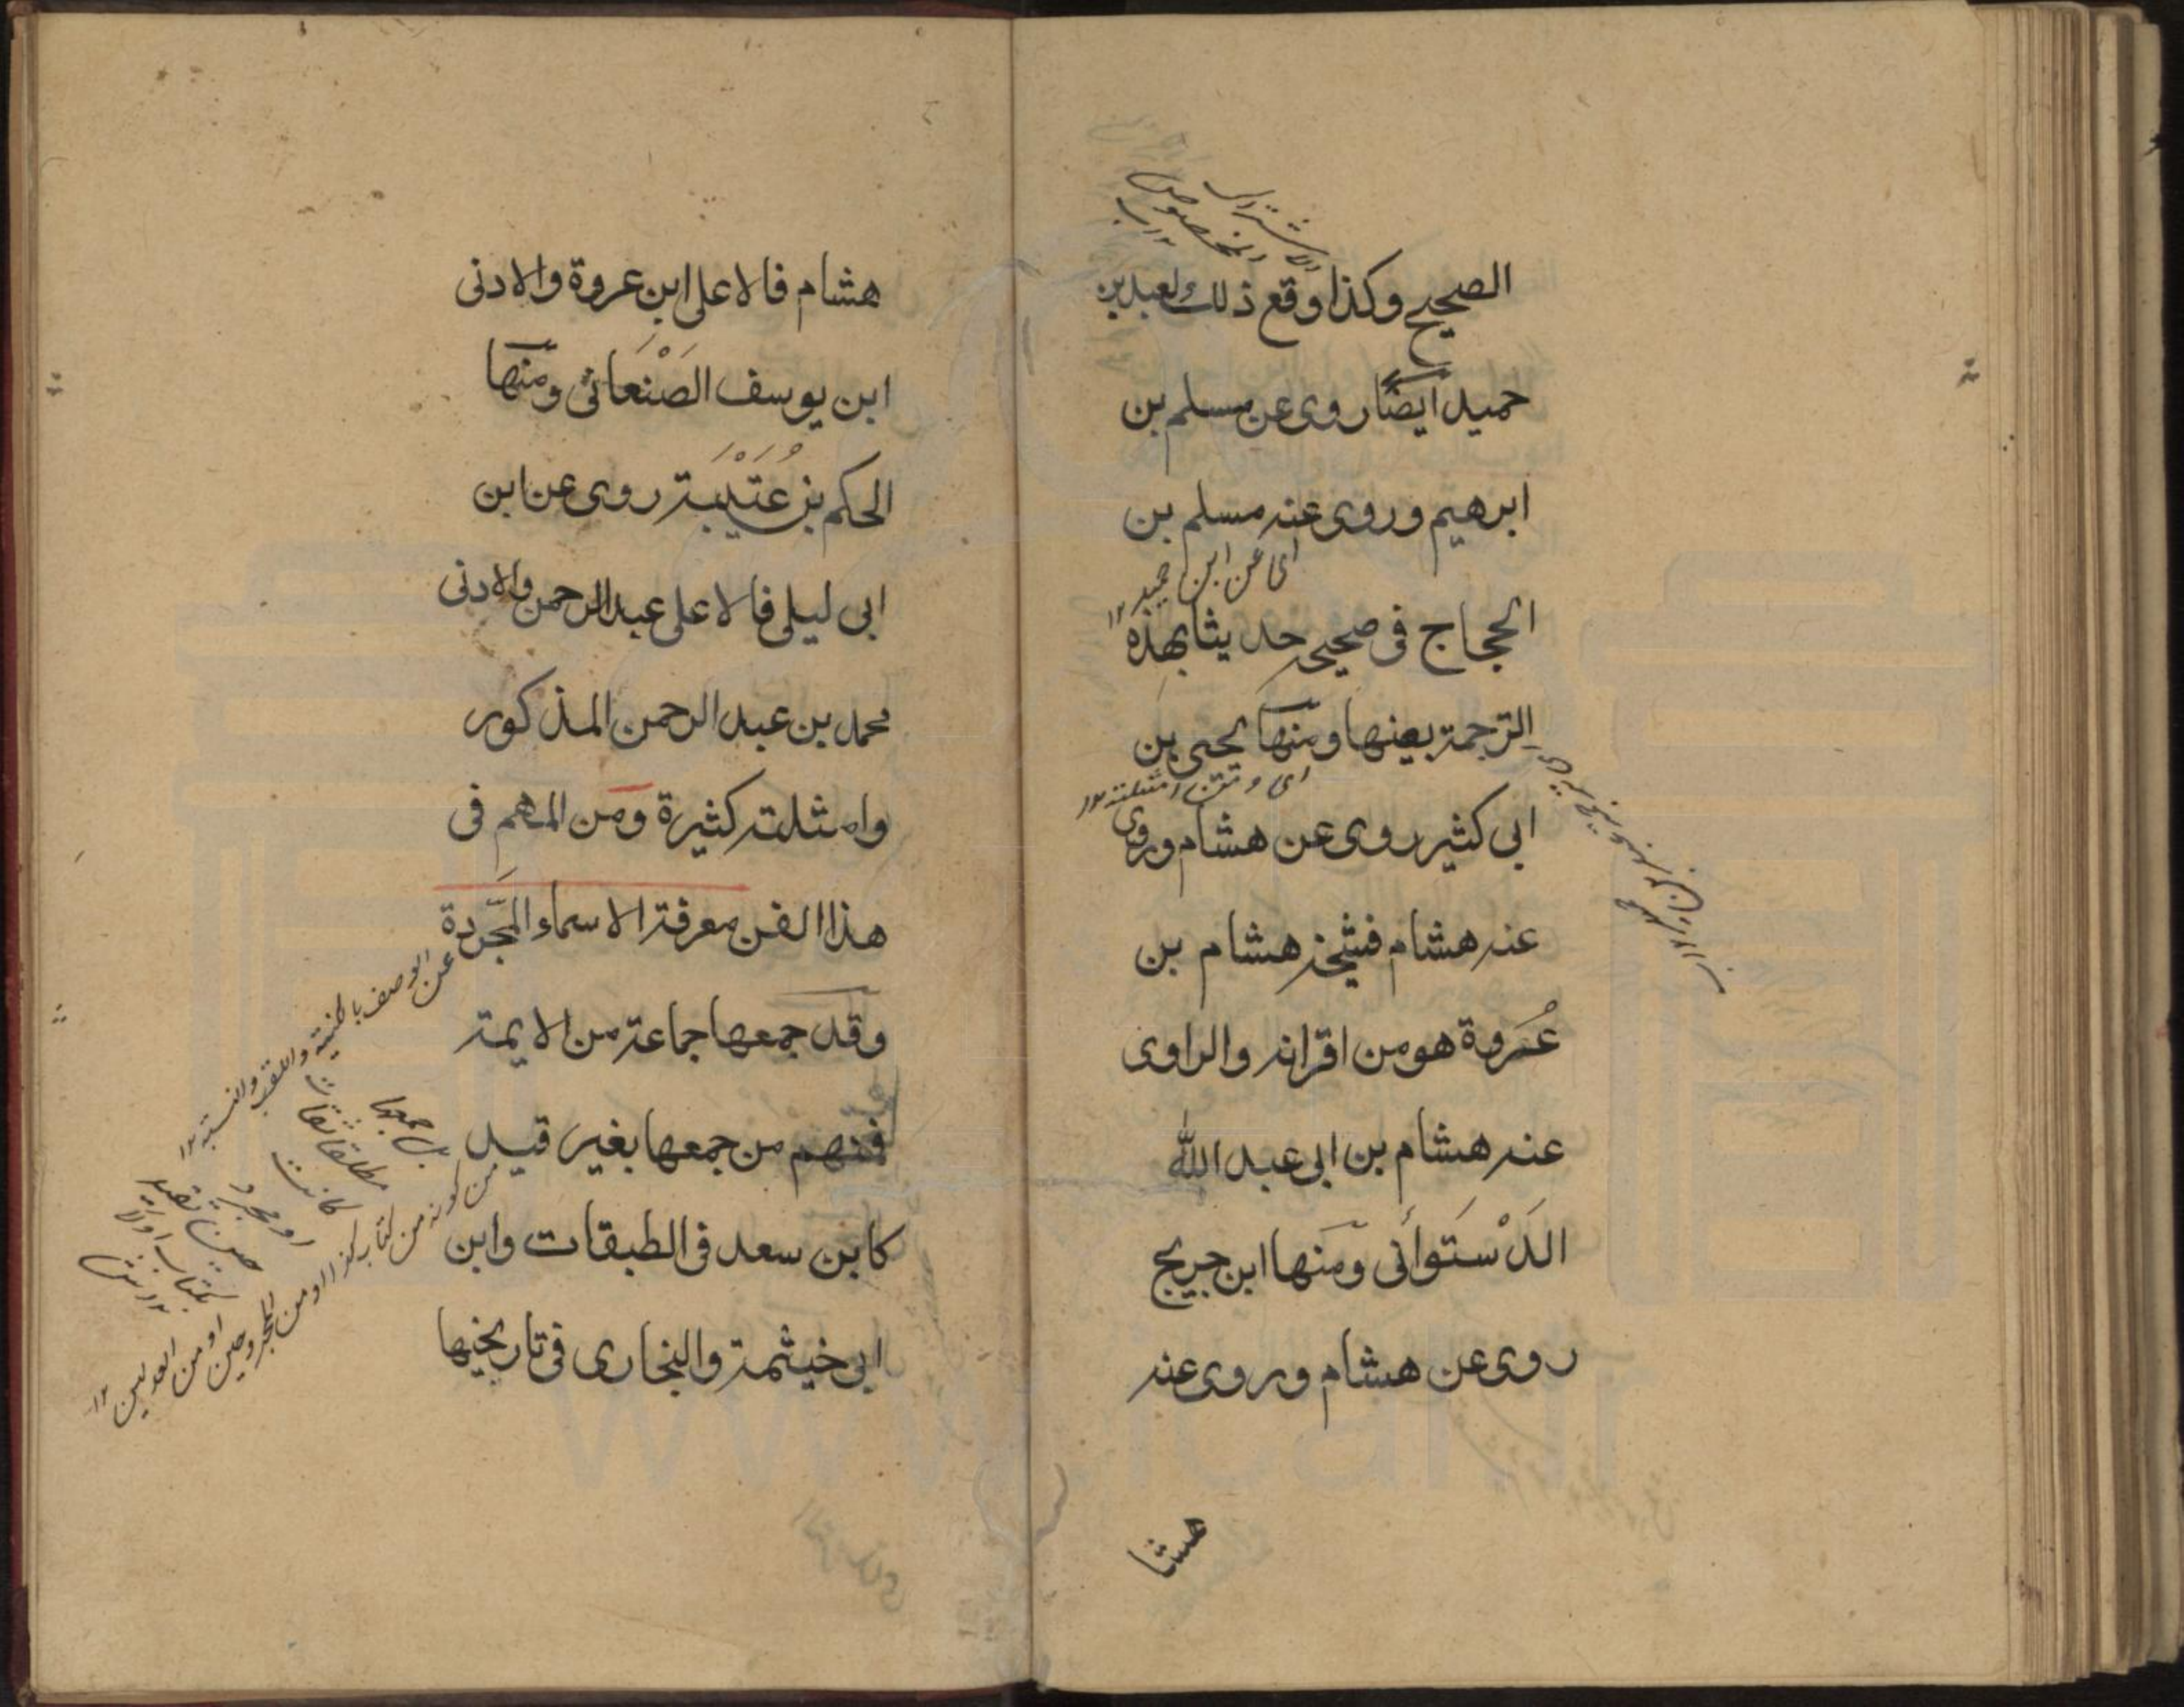 الصحيح وكذا وقع ذلك لعبد بن
حميد ايضًا روى عن مسلم بن
ابرهيم وروى عنه مسلم بن
اى عن ابن حميد ١٢
الحجاج فى صحيحه حديثا بهذه
الترجمة بعينها ومنها يحيى بن
اى ومن امثلته ١٢
ابى كثير روى عن هشام وروى
عنه هشام فشيخه هشام بن
عُروة هو من اقرانه والراوى
عنه هشام بن ابى عبد الله
الدَسْتَوأَنى ومنها ابن جريج
روى عن هشام وروى عنه
هشا
هشام فالاعلى ابن عروة والادنى
ابن يوسف الصَنْعَانى ومنها
الحكم بن عُتَيْبَة روى عن ابن
ابى ليلى فالاعلى عبد الرحمن والادنى
محمد بن عبد الرحمن المذكور
وامثلته كثيرة ومن المهم فى
هذا الفن معرفة الاسماء المجَّردة
عن الوصف بالكنية واللقب والنسبة ١٢
وقد جمعها جماعة من الايمة
فمنهم من جمعها بغير قيد
من كونه من كتاب كذا او من المجروحين او من العدلين ١٢
كابن سعد فى الطبقات وابن
ابى خيثمة والبخارى فى تاريخيها